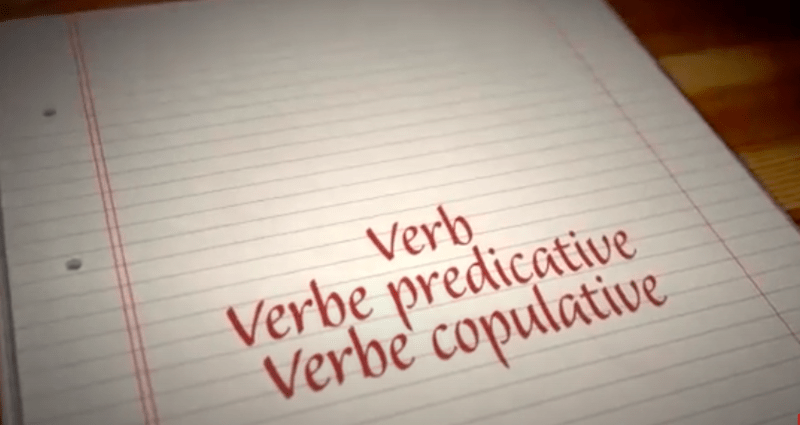 Verb
Verbe predicative
Verbe copulative